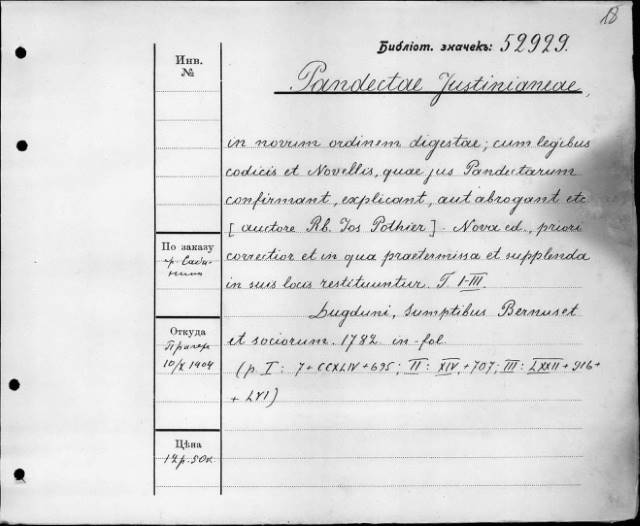 18
Библіот. значекъ: 52929.
Инв.
№
Pandectae Justinianeae,
in novum ordinem digestae; cum legibus
codicis et Novellis, quae jus Pandectarum
confirmant, explicant, aut abrogant etc
[auctore Rb. Jos Pothier]. Nova ed., priori
correctior et in qua praetermissa et supplenda
in suis locis restituuntur. T. I-III.
Lugduni, sumptibus Bernuset
et sociorum. 1782. in-fol.
(p. I: 7+CCXLIV+695; II: XIV,+707; III: LXXII+916+
+ LVI)
По заказу
Откуда
10/X 1904
Цѣна
12р. 50к.